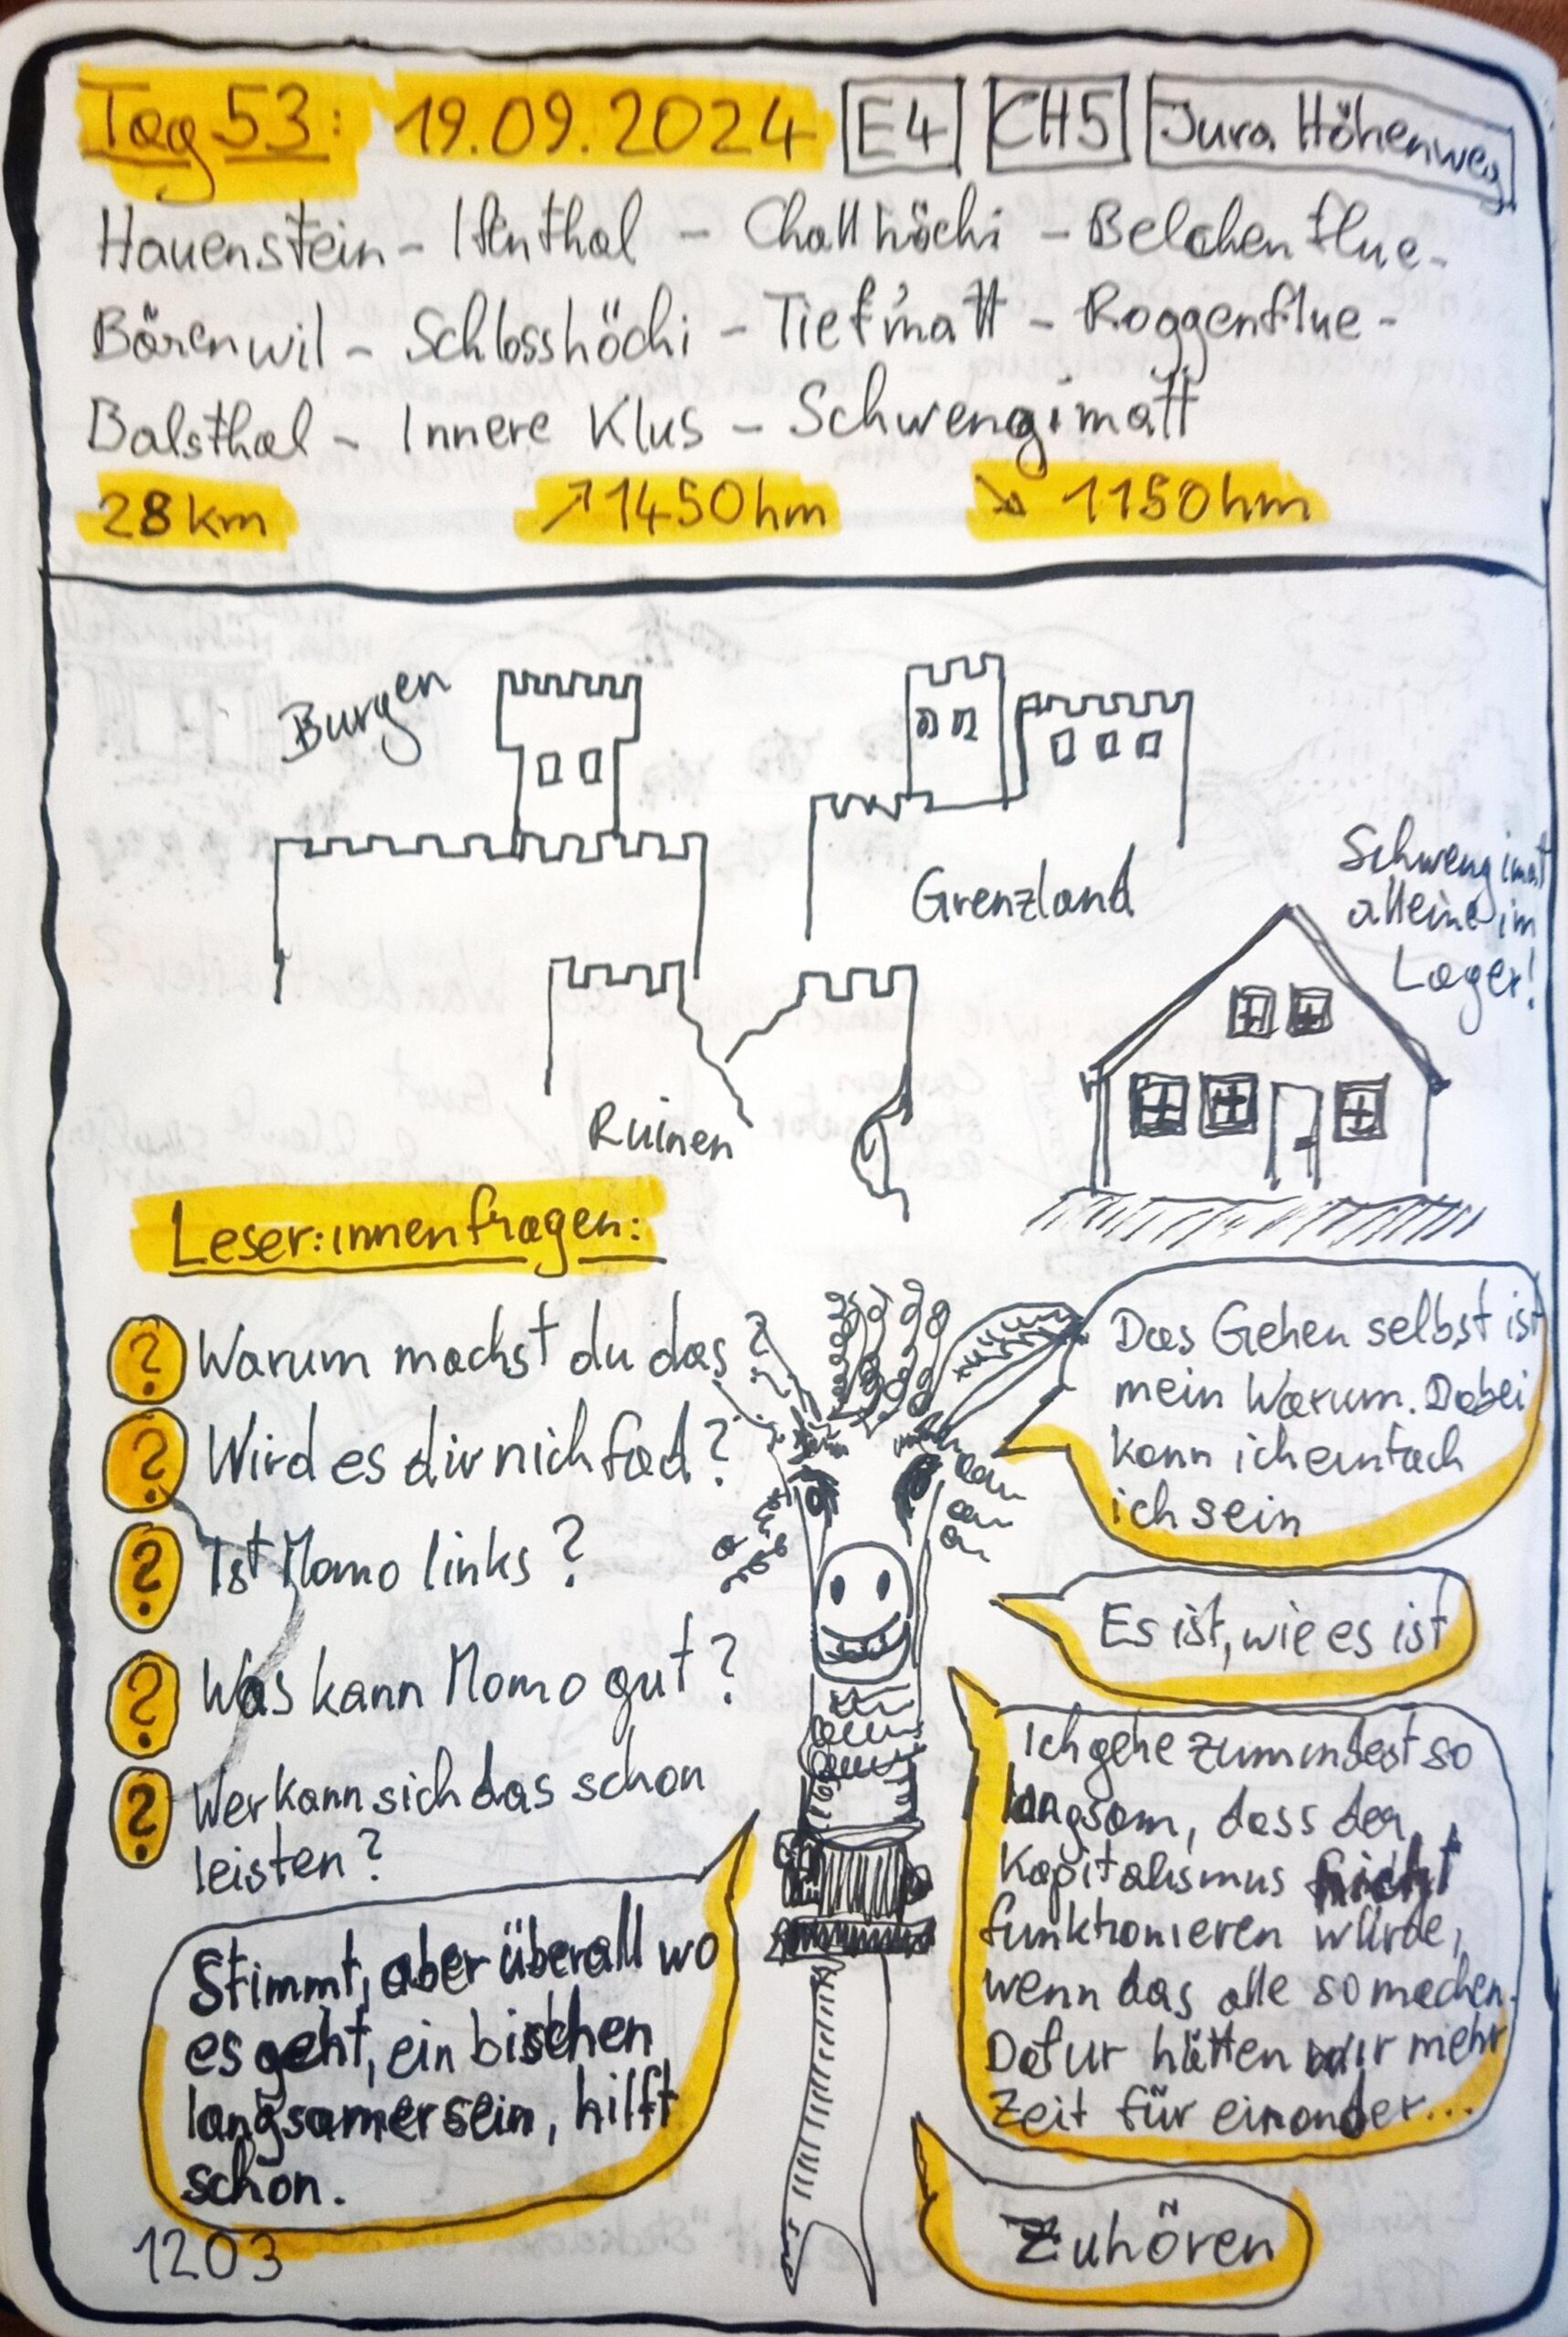 Tag 53: 19.09.2024 E4 CH5 Jura Höhenweg
Hauenstein - Ifenthal - Challhöchi - Belchenflue -
Bärenwil - Schlosshöchi - Tiefmatt - Roggenflue -
Balsthal - Innere Klus - Schwengimatt
28km ↗1450hm ↘ 1150hm
Burgen
Grenzland
Schwengimat
alleine im
Lager!
Ruinen
Leser:innenfragen:
? Warum machst du das?
? Wird es dir nich fad?
? Ist Momo links?
? Was kann Momo gut?
? Wer kann sich das schon
leisten?
Das Gehen selbst ist
mein Warum. Dabei
kann ich einfach
ich sein
Es ist, wie es ist
Ich gehe zumindest so
langsam, dass der
Kapitalismus nicht
funktionieren würde,
wenn das alle so machen.
Dafür hätten wir mehr
Zeit für einander...
Zuhören
Stimmt, aber überall wo
es geht, ein bischen
langsamer sein, hilft
schon.
1203